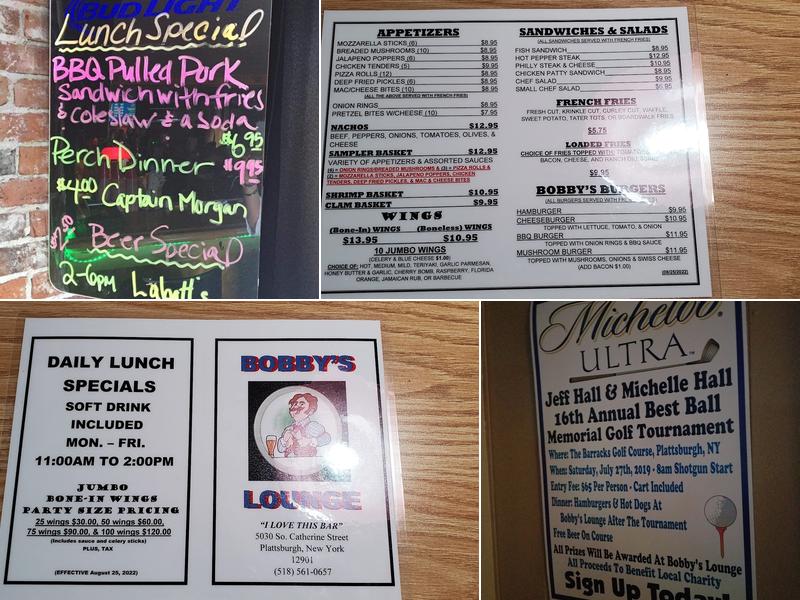 BUD LIGHT
Lunch Special
BBQ Pulled Pork
Sandwich with fries
& Coleslaw & a Soda
$6.95
Perch Dinner $9.95
$4.00 Captain Morgan
$2.50 Beer Special
2-6pm Labatt's
APPETIZERS
MOZZARELLA STICKS (6) $8.95
BREADED MUSHROOMS (10) $8.95
JALAPENO POPPERS (6) $8.95
CHICKEN TENDERS (5) $9.95
PIZZA ROLLS (12) $8.95
DEEP FRIED PICKLES (6) $8.95
MAC/CHEESE BITES (10) $8.95
(ALL THE ABOVE SERVED WITH FRENCH FRIES)
ONION RINGS $6.95
PRETZEL BITES W/CHEESE (10) $7.95
NACHOS $12.95
BEEF, PEPPERS, ONIONS, TOMATOES, OLIVES, &
CHEESE
SAMPLER BASKET $12.95
VARIETY OF APPETIZERS & ASSORTED SAUCES
(4) = ONION RINGS/BREADED MUSHROOMS & (3) = PIZZA ROLLS &
(2) = MOZZARELLA STICKS, JALAPENO POPPERS, CHICKEN
TENDERS, DEEP FRIED PICKLES, & MAC & CHEESE BITES
SHRIMP BASKET $10.95
CLAM BASKET $9.95
WINGS
(Bone-In) WINGS (Boneless) WINGS
$13.95 $10.95
10 JUMBO WINGS
(CELERY & BLUE CHEESE $1.00)
CHOICE OF: HOT, MEDIUM, MILD, TERIYAKI, GARLIC PARMESAN,
HONEY BUTTER & GARLIC, CHERRY BOMB, RASPBERRY, FLORIDA
ORANGE, JAMAICAN RUB, OR BARBECUE
SANDWICHES & SALADS
(ALL SANDWICHES SERVED WITH FRENCH FRIES)
FISH SANDWICH $8.95
HOT PEPPER STEAK $12.95
PHILLY STEAK & CHEESE $10.95
CHICKEN PATTY SANDWICH $8.95
CHEF SALAD $9.95
SMALL CHEF SALAD $6.95
FRENCH FRIES
FRESH CUT, KRINKLE CUT, CURLEY CUT, WAFFLE,
SWEET POTATO, TATER TOTS, OR BOARDWALK FRIES
$5.75
LOADED FRIES
CHOICE OF FRIES TOPPED WITH: TOMATOES,
BACON, CHEESE, AND RANCH DRESSING
$9.95
BOBBY'S BURGERS
(ALL BURGERS SERVED WITH FRENCH FRIES)
HAMBURGER $9.95
CHEESEBURGER $10.95
TOPPED WITH LETTUCE, TOMATO, & ONION
BBQ BURGER $11.95
TOPPED WITH ONION RINGS & BBQ SAUCE
MUSHROOM BURGER $11.95
TOPPED WITH MUSHROOMS, ONIONS & SWISS CHEESE
(ADD BACON $1.00)
(08/25/2022)
DAILY LUNCH
SPECIALS
SOFT DRINK
INCLUDED
MON. – FRI.
11:00AM TO 2:00PM
JUMBO
BONE-IN WINGS
PARTY SIZE PRICING
25 wings $30.00, 50 wings $60.00,
75 wings $90.00, & 100 wings $120.00
(Includes sauce and celery sticks)
PLUS, TAX
(EFFECTIVE August 25, 2022)
BOBBY'S
LOUNGE
"I LOVE THIS BAR"
5030 So. Catherine Street
Plattsburgh, New York
12901
(518) 561-0657
Michelob
ULTRA
Jeff Hall & Michelle Hall
16th Annual Best Ball
Memorial Golf Tournament
Where: The Barracks Golf Course, Plattsburgh, NY
When: Saturday, July 27th, 2019 - 8am Shotgun Start
Entry Fee: $65 Per Person - Cart Included
Dinner: Hamburgers & Hot Dogs At
Bobby's Lounge After The Tournament
Free Beer On Course
All Prizes Will Be Awarded At Bobby's Lounge
All Proceeds To Benefit Local Charity
Sign Up Today!